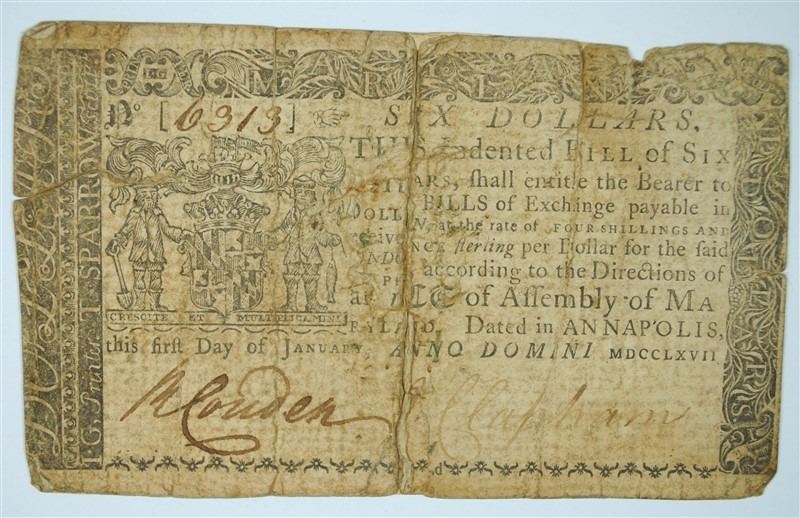 MARYLAND
No [6313] SIX DOLLARS.
THIS indented BILL of SIX
DOLLARS, shall entitle the Bearer to
BILLS of Exchange payable in
at the rate of FOUR SHILLINGS AND
sterling per Dollar for the said
according to the Directions of
an ACT of Assembly of MA
CRESCITE ET MULTIPLICAMINI
RYLAND. Dated in ANNAPOLIS,
this first Day of JANUARY, ANNO DOMINI MDCCLXVII
R Couden J Clapham
T. SPARROW